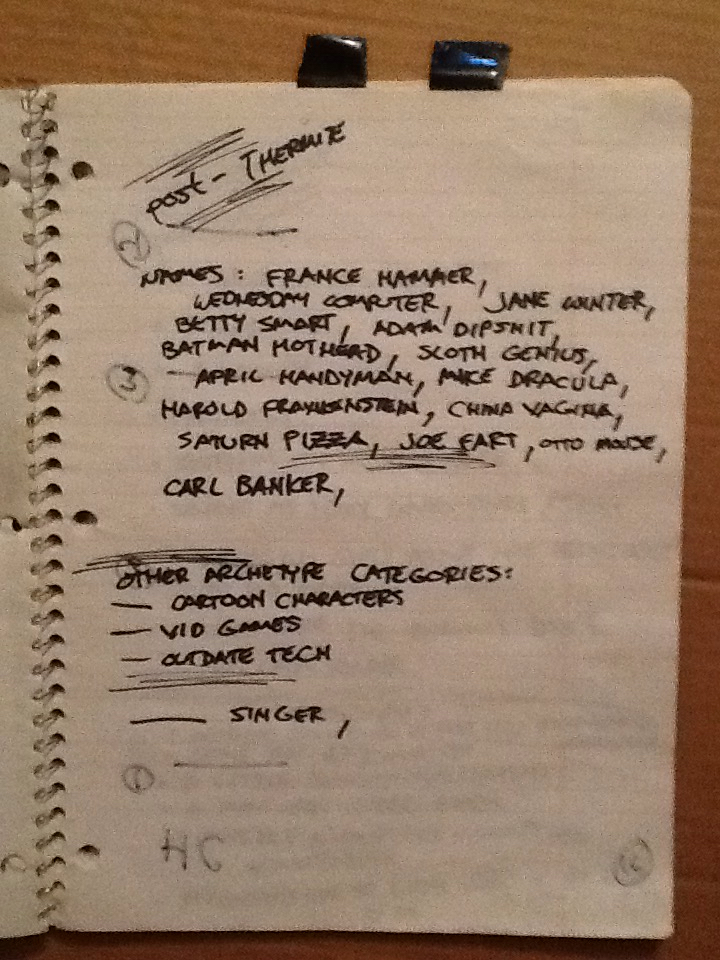 POST - THERMITE
2
NAMES : FRANCE HAMMER,
WEDNESDAY COMPUTER, JANE WINTER,
BETTY SMART, ADAM DIPSHIT,
BATMAN MOTHERD, SLOTH GENIUS,
3
- APRIL HANDYMAN, MIKE DRACULA,
HAROLD FRANKENSTEIN, CHINA VAGINA,
SATURN PIZZA, JOE FART, OTTO MOUSE,
CARL BANKER,
OTHER ARCHETYPE CATEGORIES:
— CARTOON CHARACTERS
— VID GAMES
— OUTDATE TECH
— SINGER,
HC